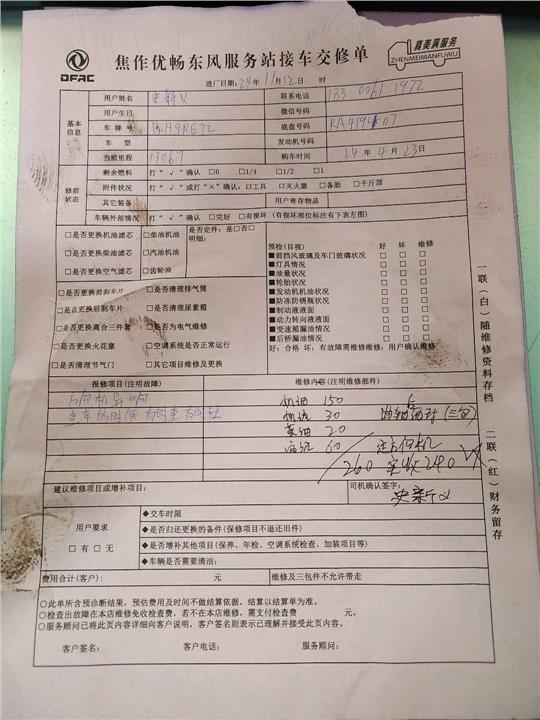 DFAC
焦作优畅东风服务站接车交修单
真美满服务
ZHENMEIMANFUWU
进厂日期：24年11月12日 时
基本信息
用户姓名 史新义 联系电话
用户生日 微信号码
车牌号 底盘号码
车型 发动机号码
当前里程 13067 购车时间 24年4月23日
修前状态
剩余燃料 打“√”确认 □0 □1/4 □1/2 □1
附件状况 打“√”或打“×”确认：□工具 □灭火器 □备胎 □千斤顶
其它装备 用户寄存物品
车辆外部情况 打“√”确认 □完好 □有损坏（有损坏部位标注有下表左图）
□是否更换机油滤芯 □柴油机油 是否定件：是□否□
□是否更换柴油滤芯 □汽油机油 明细：
□是否更换空气滤芯 □齿轮油
□是否更换前刹车片 □是否清理排气筒
□是否更换后刹车片 □是否清理尿素箱
□是否更换离合三件套 □是否为电气维修
□是否更换火花塞 □空调系统是否正常运行
□是否清理节气门 □其它项目维修及更换
预检（目视） 好 坏 维修
■前挡风玻璃及车门玻璃状况 □ □ □
■灯具情况 □ □ □
■油量状况 □ □ □
■轮胎状况 □ □ □
■发动机机油状况 □ □ □
■防冻防锈瓶状况 □ □ □
■制动液液面 □ □ □
■动力转向液液面 □ □ □
■变速箱漏油情况 □ □ □
■后桥漏油情况 □ □ □
好：合格 坏：有故障需维修维修：用户确认维修
报修项目（注明故障） 维修内容（注明维修部件）
方向机异响
机油 150
机滤 30
柴油 20
60
260 实收240
建议维修项目或增补项目：
司机确认签字：
史新义
用户要求
□有 □无
◆交车时限
◆是否归还更换的备件（保修项目不退还旧件）
◆是否增补其他项目（保养、年检、空调系统检查、加装项目等）
◆车辆是否需要清洁：
费用合计（客户）： 元 维修及三包件不允许带走
○此单所含预诊断结果，预估费用及时间不做结算依据，结算以结算单为准。
○检查出故障在本店维修免收检查费，若不在本店维修，需支付检查费 元。
○服务顾问已将此页内容详细向客户说明，客户签名则表示已理解并接受此页内容。
客户签名： 客户电话： 服务顾问：
一联（白）随维修资料存档
二联（红）财务留存